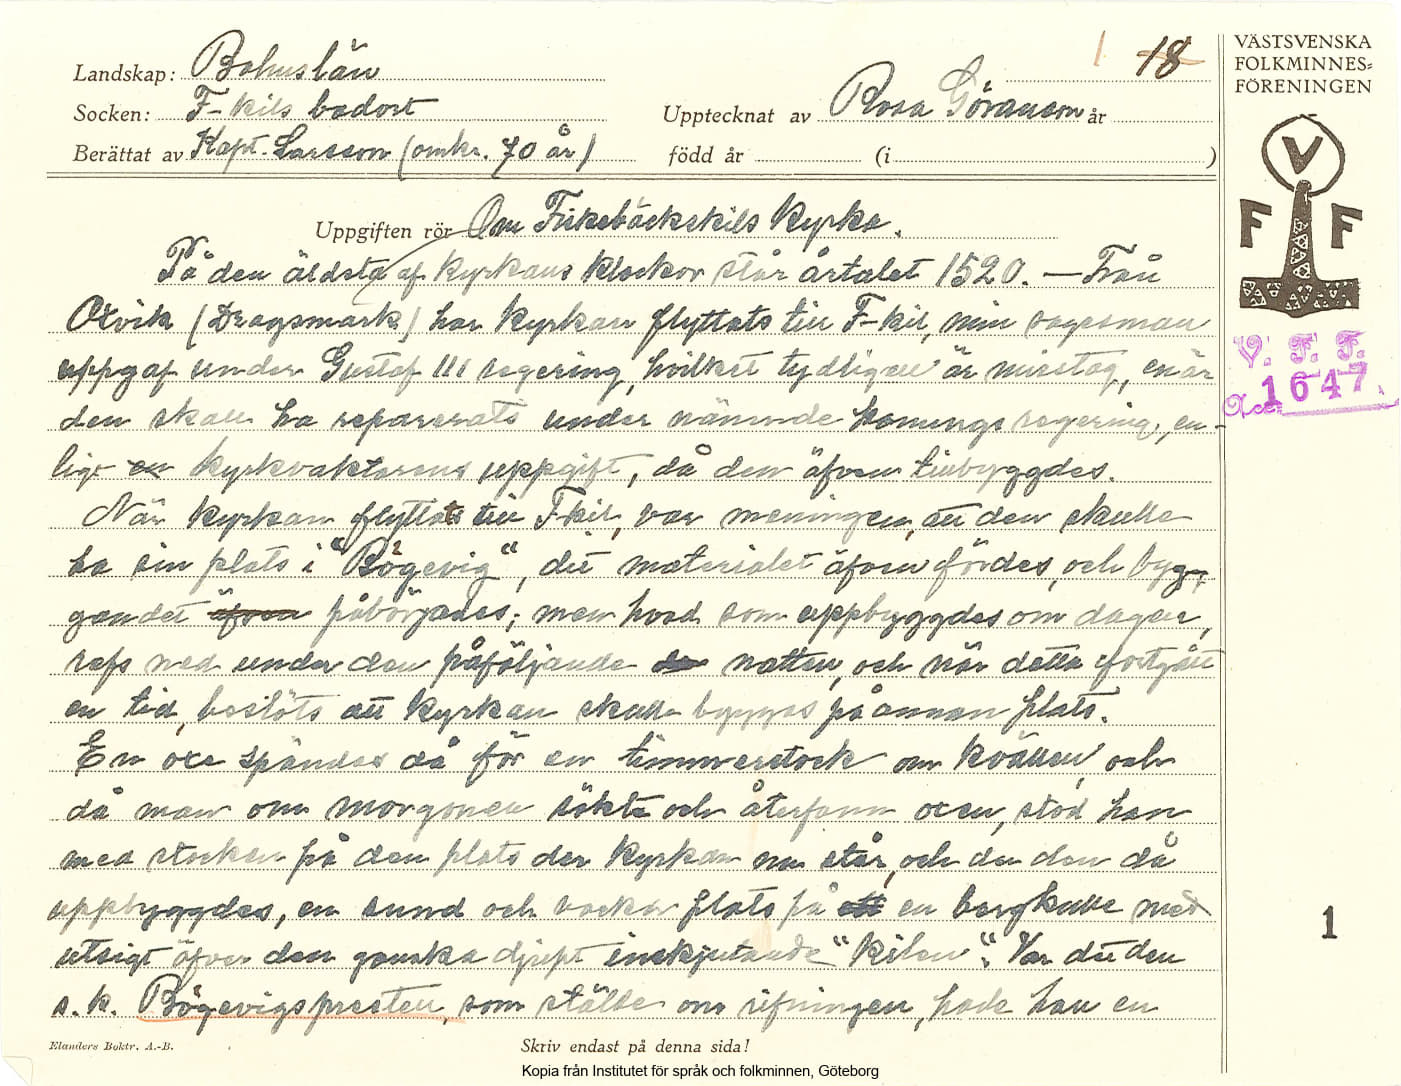 Landskap: Bohuslän
Socken: F-kils badort
Berättat av Kapt. Larsson (omkr. 70 år)
1 18
Upptecknat av Rosa Göranson år
född år (i )
VÄSTSVENSKA
FOLKMINNES-
FÖRENINGEN
V
F F
V. F. F.
Acc. 1647
Uppgiften rör Om Fiskebäckskils Kyrka.
På den äldsta af Kyrkans klockor står årtalet 1520. — Från
Oxvik (Dragsmark) har Kyrkan flyttats till F-kil, min sagesman
uppgaf under Gustaf III regering, hvilket tydligen är misstag, en är
den skall ha reparerats under nämnde Konungs regering, en-
ligt en kyrkvaktarens uppgift, då den äfven tillbyggdes.
När Kyrkan flyttats till F-kil, var meningen, att den skulle
ha sin plats i "Bögevig", dit materialet äfven fördes, och byg-
gandet äfven påbörjades; men hvad som uppbyggdes om dagen,
refs ned under den påföljande natten, och när detta fortgått
en tid, beslöts att Kyrkan skulle byggas på annan plats.
En oxe spändes då för en timmerstock om kvällen, och
då man om morgonen sökte och återfann oxen, stod han
med stocken på den plats der Kyrkan nu står, och der den då
uppbyggdes, en sund och vacker plats på ett en bergkulle med
utsigt öfver den ganska djupt inskjutande "kilen". Var det den
s.k. Bögevigspresten, som stälde om rifningen, hade han en
1
Elanders Boktr. A.-B.
Skriv endast på denna sida!
Kopia från Institutet för språk och folkminnen, Göteborg